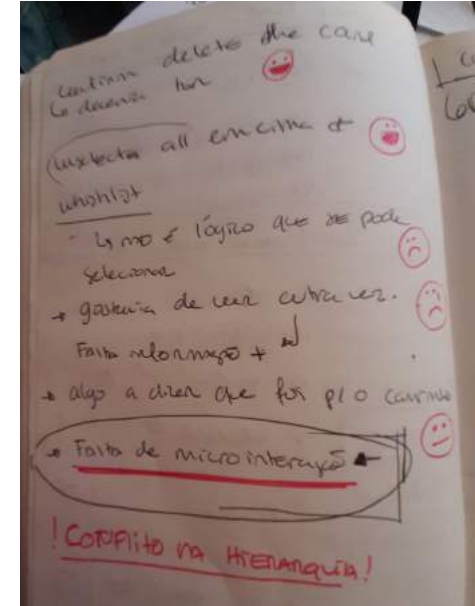 confirm delete the card
↳ deveria ter
all em cima +
wishlist
↳ não é lógico que se pode
selecionar
→ gostaria de ver outra vez.
Falta informação +
→ algo a dizer que foi p/ o carrinho
• Falta de microinteração ←
! CONFLITO NA HIERARQUIA!